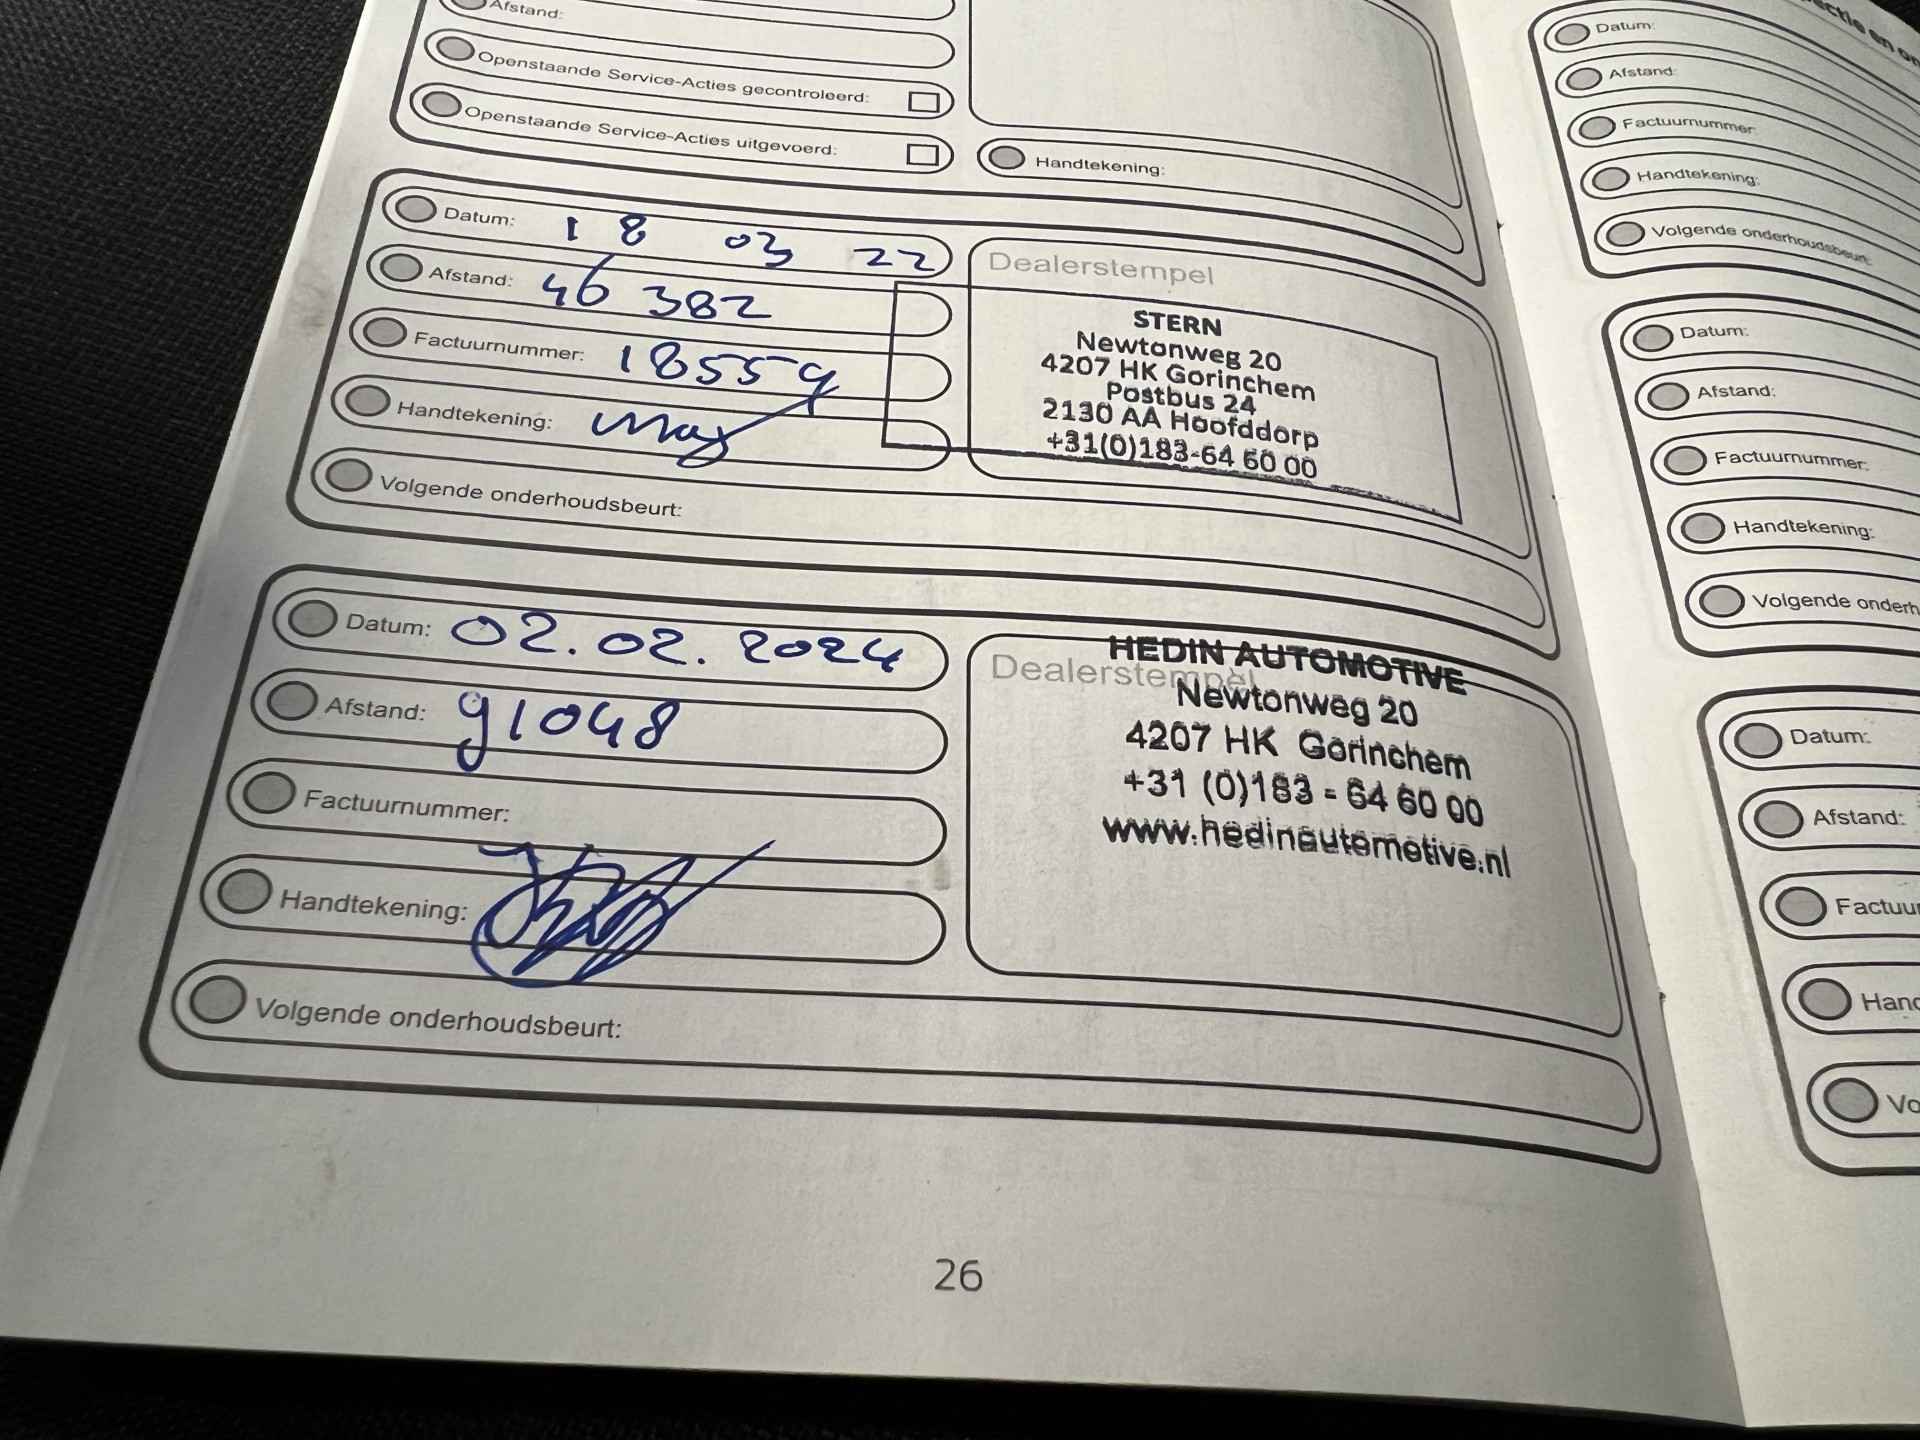 Afstand:
Openstaande Service-Acties gecontroleerd:
Openstaande Service-Acties uitgevoerd:
Handtekening:
Datum: 18 03 22
Afstand: 46 382
Factuurnummer: 18559
Handtekening:
Volgende onderhoudsbeurt:
Dealerstempel
STERN
Newtonweg 20
4207 HK Gorinchem
Postbus 24
2130 AA Hoofddorp
+31(0)183-64 60 00
Datum: 02.02.2024
Afstand: 91048
Factuurnummer:
Handtekening:
Volgende onderhoudsbeurt:
Dealerstempel
HEDIN AUTOMOTIVE
Newtonweg 20
4207 HK Gorinchem
+31 (0)183 - 64 60 00
www.hedinautomotive.nl
26
en
Datum:
Afstand:
Factuurnummer:
Handtekening:
Volgende onderhoudsbeurt:
Datum:
Afstand:
Factuurnummer:
Handtekening:
Volgende onderh
Datum:
Afstand:
Factuu
Hand
Vo